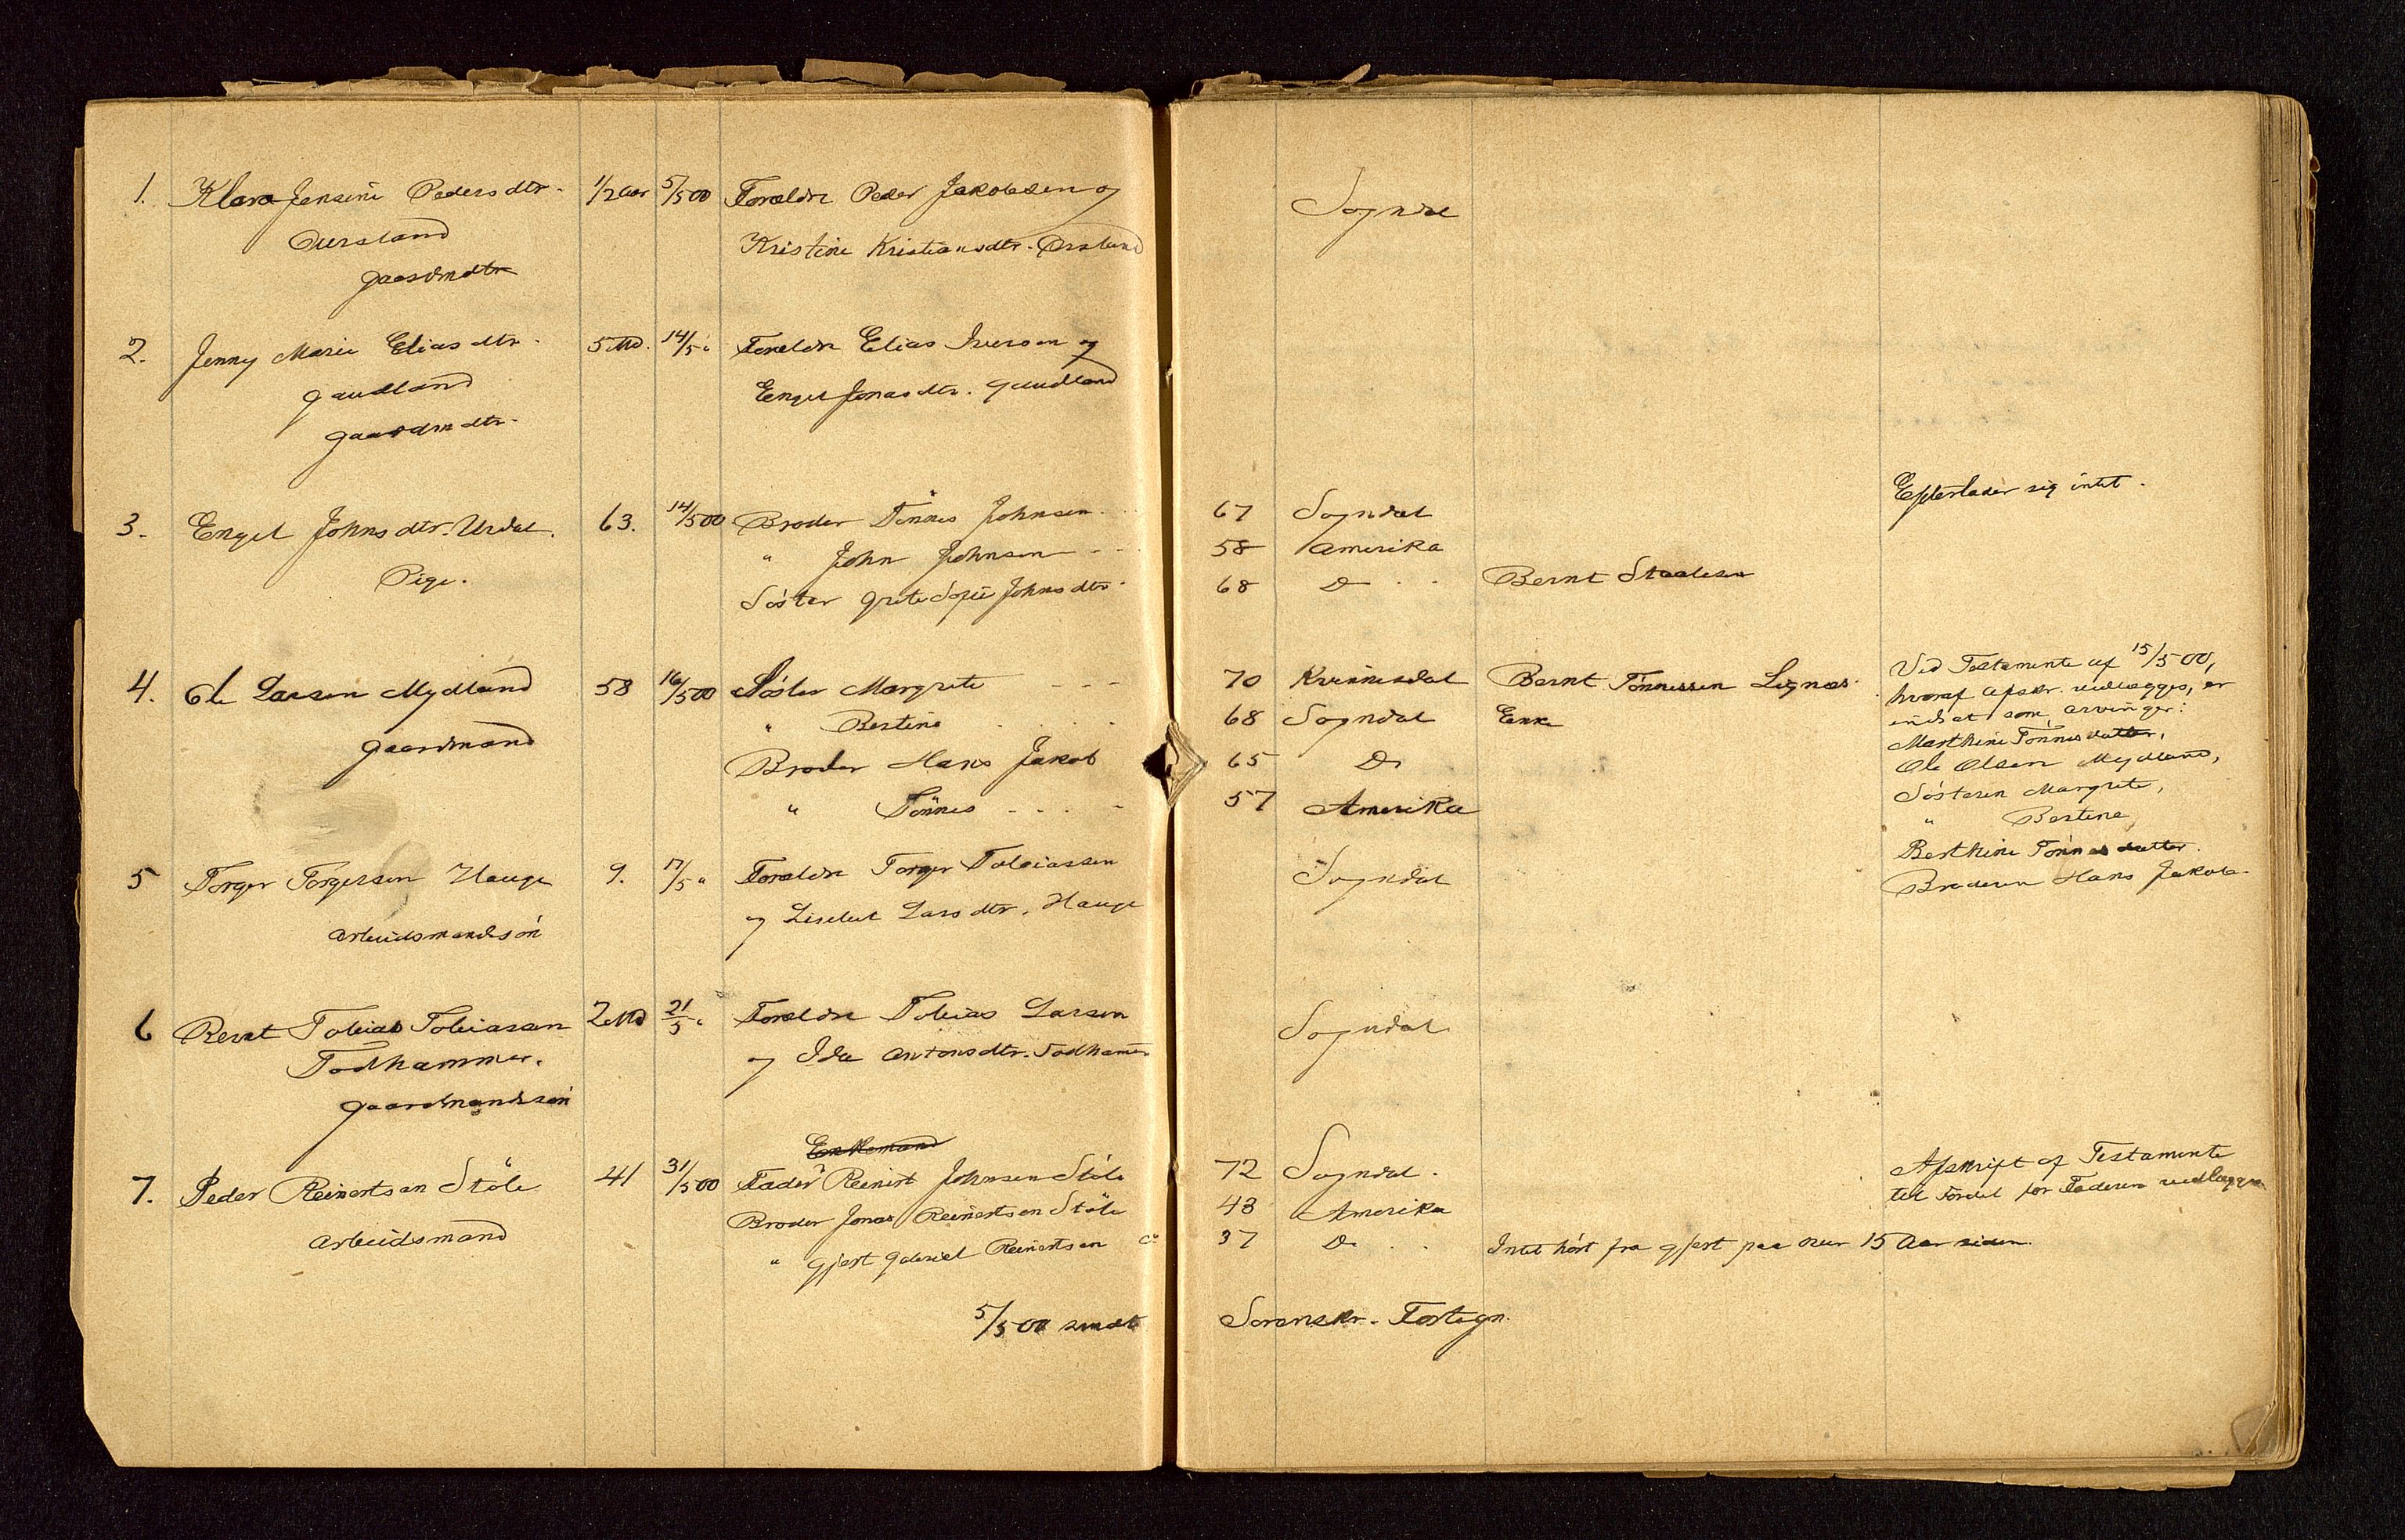 1. Klara Jensine Pedersdtr. 1/2 aar 5/5 00 Forældre Peder Jakobsen og
Kristine Kristiansdtr. Ørsland
Ouersland
gaardmdtr
Sogndal
2. Jenny Marie Eliasdtr. 5 Md. 14/5 " Forældre Elias Iversen og
Gaudland Engel Jonasdtr. Gaudland
gaardmdtr.
3. Engel Johnsdtr. Urdal. 63. 14/5 00 Broder Tönnes Johnsen 67 Sogndal Efterlader sig intet.
" John Johnsen 58 Amerika
Pige. Söster Grete Sofie Johnsdtr. 68 Do Bernt Staalesen
4. Ole Larsen Mydland 58 16/5 00 Söster Margrete 70 Kvinnesdal Bernt Tönnessen Lignæs
" Bertine 68 Sogndal Enke
gaardmand Broder Hans Jakob 65 Do
" Tönnes 57 Amerika
Ved Testamente af 15/5 00,
hvoraf Afskr. vedlægges, er
indsat som Arvinger:
Marthine Tönnesdatter,
Ole Olsen Mydland,
Sösteren Margrete,
" Bertine
Berthine Tönnesdatter.
Broderen Hans Jakob.
5 Torger Torgersen Hauge 9. 17/5 " Forældre Torger Tobiassen Sogndal
og Lisebet Larsdtr. Hauge
arbeidsmandsön
6 Bernt Tobias Tobiassen 2 Md 21/5 " Forældre Tobias Larsen Sogndal
Todhammer. og Ida Antonsdtr. Todhamer
gaardmandsön
Enkemand
7. Peder Reinertsen Stöle 41 31/5 00 Fader Reinert Johnsen Stöle 72 Sogndal.
Broder Jonas Reinertsen Stöle 43 Amerika
arbeidsmand " Gjert Gabriel Reinertsen 37 Do Intet hört fra Gjert paa over 15 Aar siden.
Afskrift af Testamente
til Fordel for Faderen vedlægges
5/5 00 sendt Sorenskr. Fortegn.